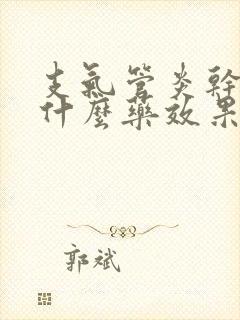 支氣管炎幹
什麼藥效果
郭斌